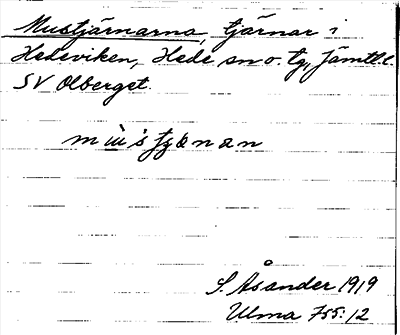 Mustjärnarna, tjärnar i
Hedeviken, Hede sn o. tg, Jämtl. l.
SV Olberget.
S. Åsander 1919
Ulma 755:12